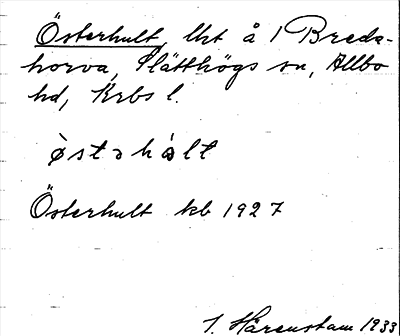 Österhult, lht å 1 Breda-
horva, Slätthögs sn, Allbo
hd, Krbs l.
òstəhàlt
Österhult kb 1927
I. Hårenstam 1933